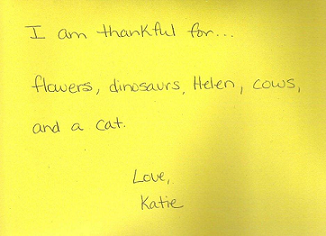 I am thankful for...
flowers, dinosaurs, Helen, cows,
and a cat.
Love,
Katie